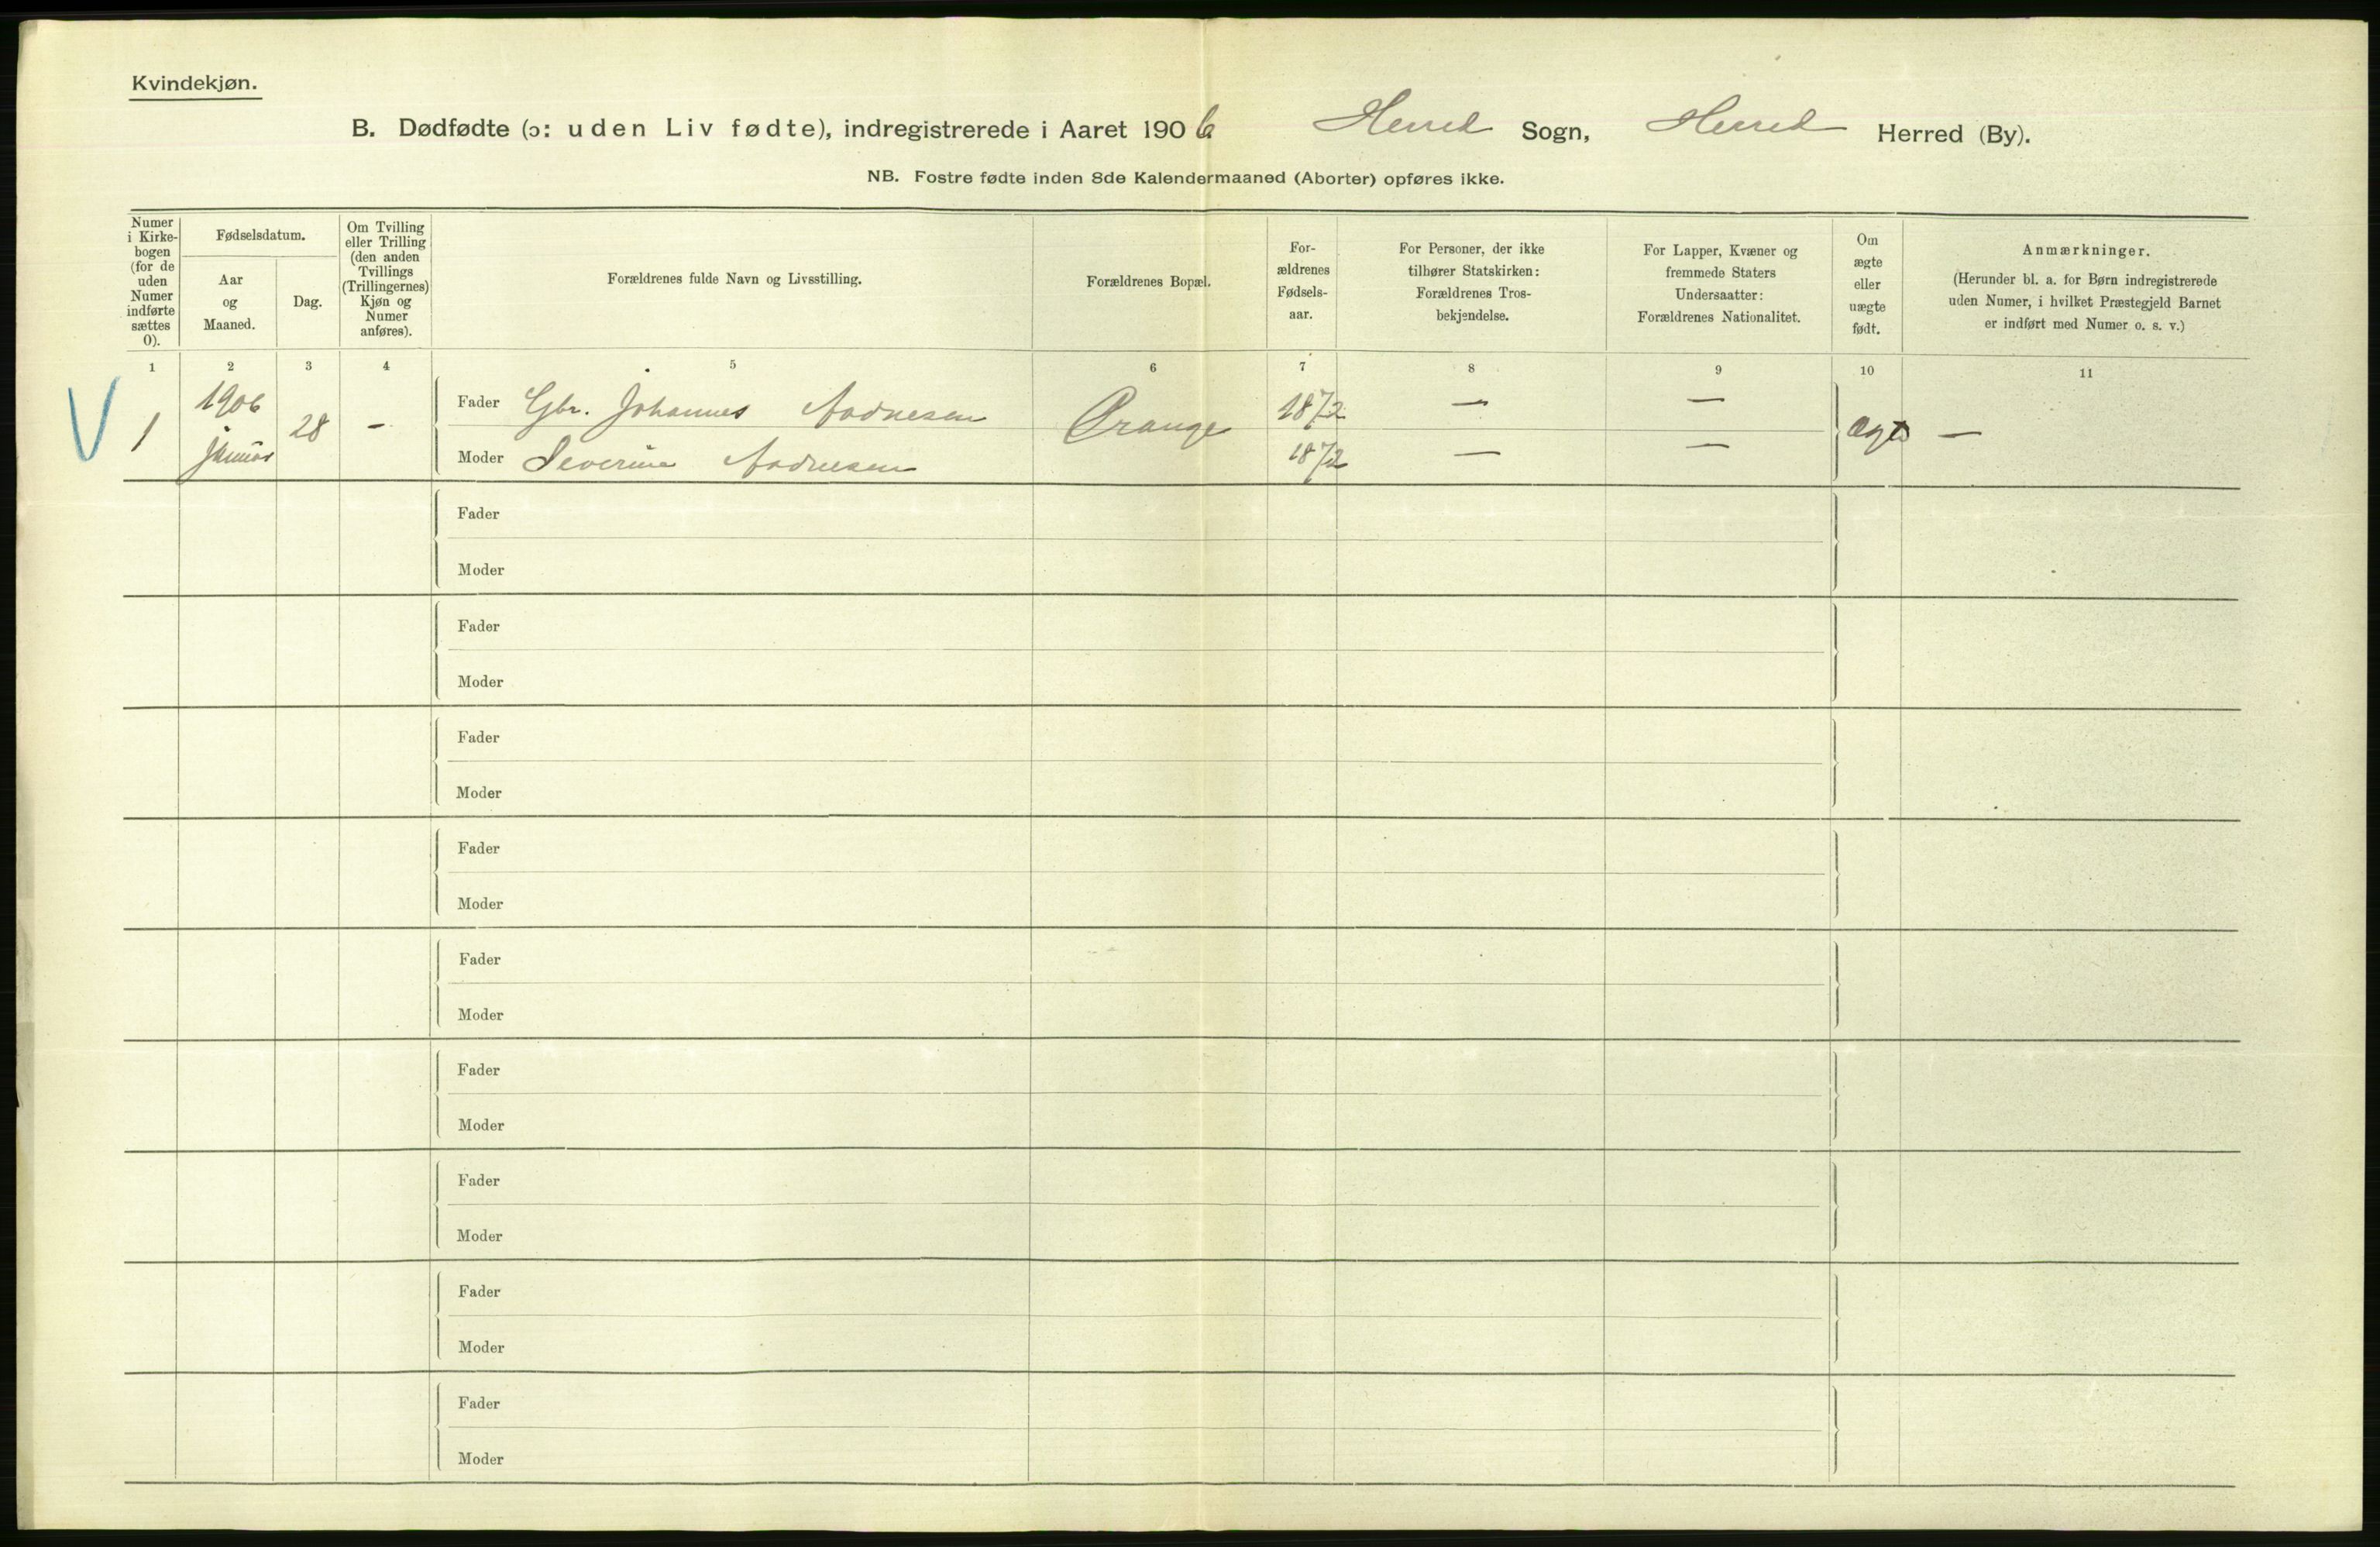 Kvindekjøn.
B. Dødfødte (ɔ: uden Liv fødte), indregistrerede i Aaret 1906 Herred Sogn, Herred Herred (By).
NB. Fostre fødte inden 8de Kalendermaaned (Aborter) opføres ikke.
Numer i Kirke-bogen (for de uden Numer indførte sættes 0).
Fødselsdatum.
Aar og Maaned.
Dag.
Om Tvilling eller Trilling (den anden Tvillings (Trillingernes) Kjøn og Numer anføres).
Forældrenes fulde Navn og Livsstilling.
Forældrenes Bopæl.
For-ældrenes Fødsels-aar.
For Personer, der ikke tilhører Statskirken: Forældrenes Tros-bekjendelse.
For Lapper, Kvæner og fremmede Staters Undersaatter: Forældrenes Nationalitet.
Om ægte eller uægte født.
Anmærkninger.
(Herunder bl. a. for Børn indregistrerede uden Numer, i hvilket Præstegjeld Barnet er indført med Numer o. s. v.)
1 2 3 4 5 6 7 8 9 10 11
V 1 1906 Januar 28 -
Fader Gbr. Johannes Aadnesen Ørange 1872 — —
Moder Severine Aadnesen 1872 — — ægte —
Fader
Moder
Fader
Moder
Fader
Moder
Fader
Moder
Fader
Moder
Fader
Moder
Fader
Moder
Fader
Moder
Fader
Moder